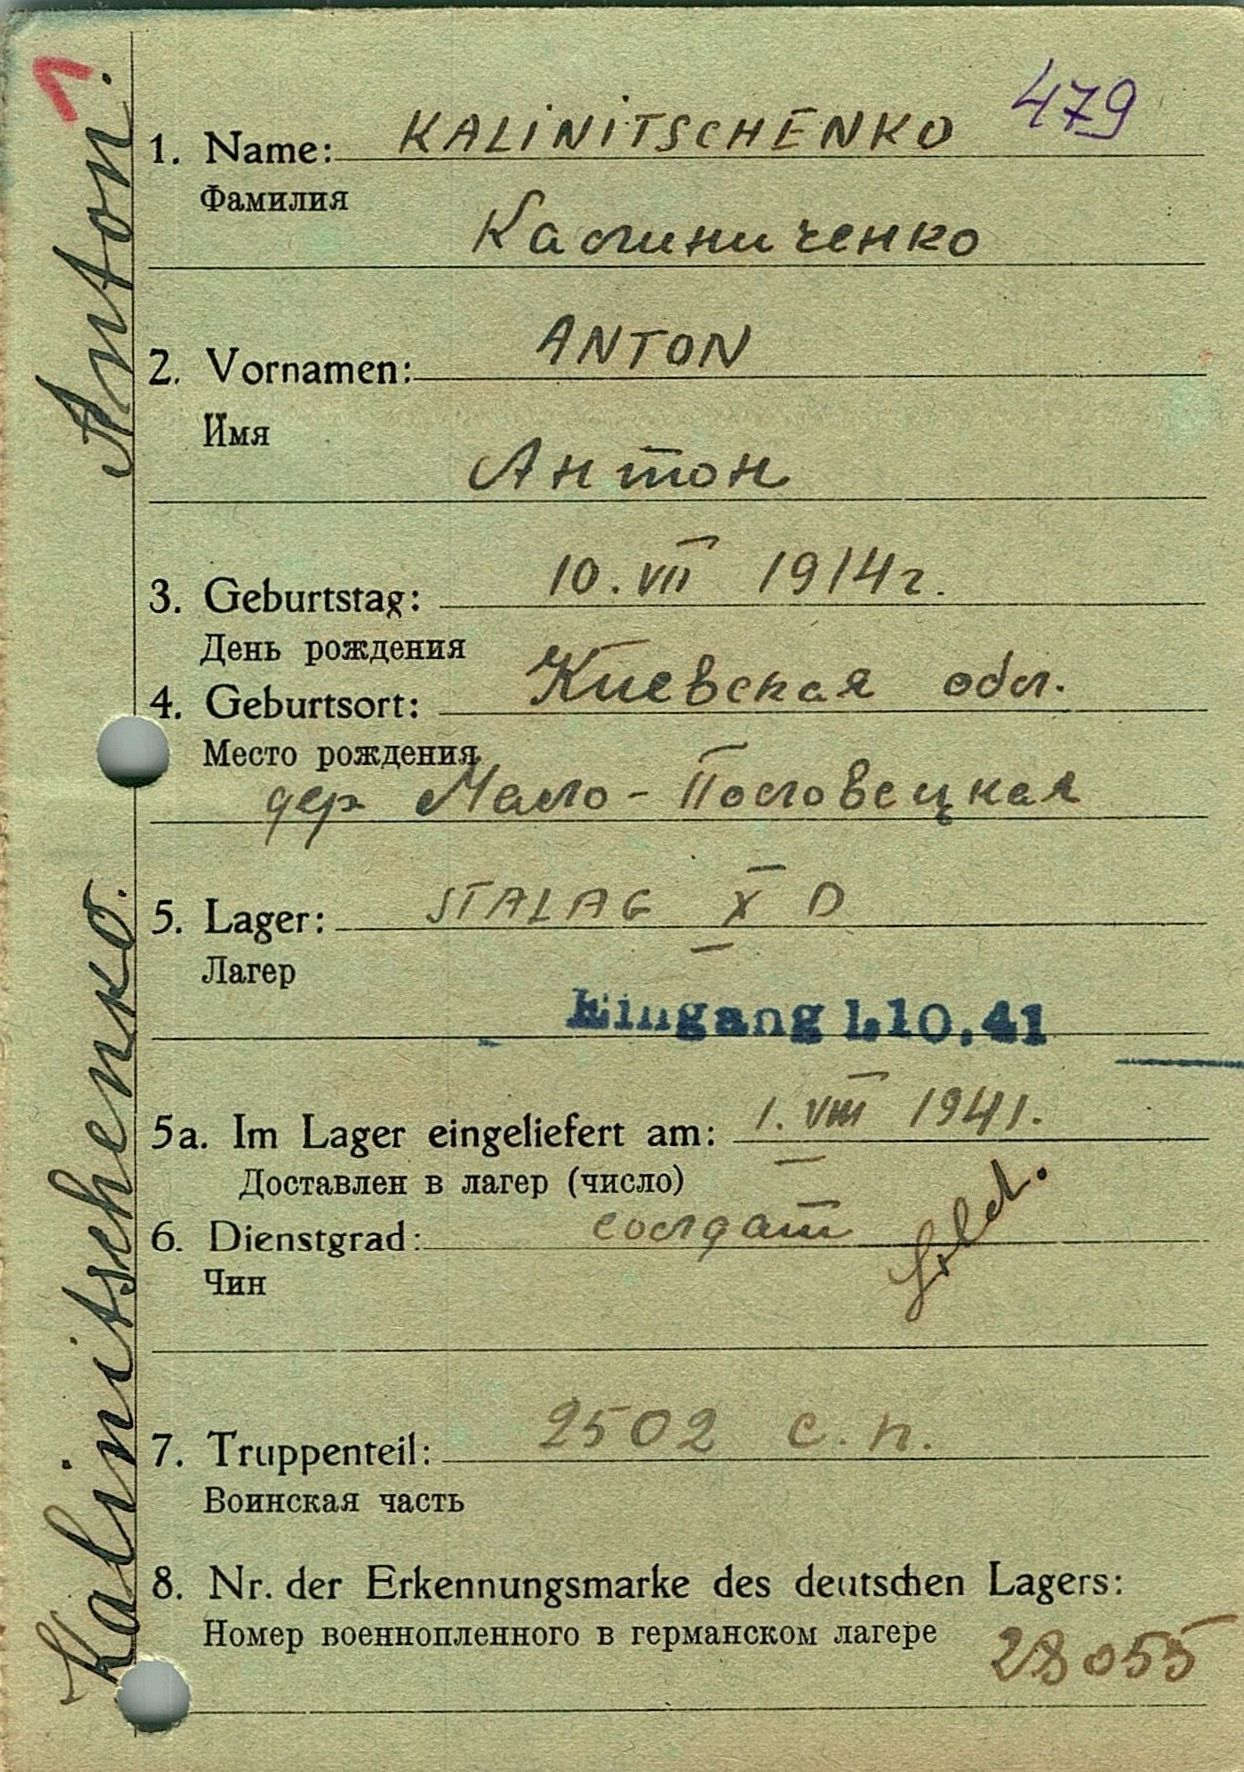 Kalinitschenko. Anton.
479
1. Name: KALINITSCHENKO
Фамилия
Калиниченко
2. Vornamen: ANTON
Имя
Антон
3. Geburtstag: 10. VII 1914 г.
День рождения
4. Geburtsort: Киевская обл.
Место рождения
дер Мало-Пословецкая
5. Lager: STALAG X D
Лагер
Eingang 1.10.41
5a. Im Lager eingeliefert am: 1. VIII 1941.
Доставлен в лагер (число)
6. Dienstgrad: солдат Sold.
Чин
7. Truppenteil: 2502 с.п.
Воинская часть
8. Nr. der Erkennungsmarke des deutschen Lagers:
Номер военнопленного в германском лагере 28055